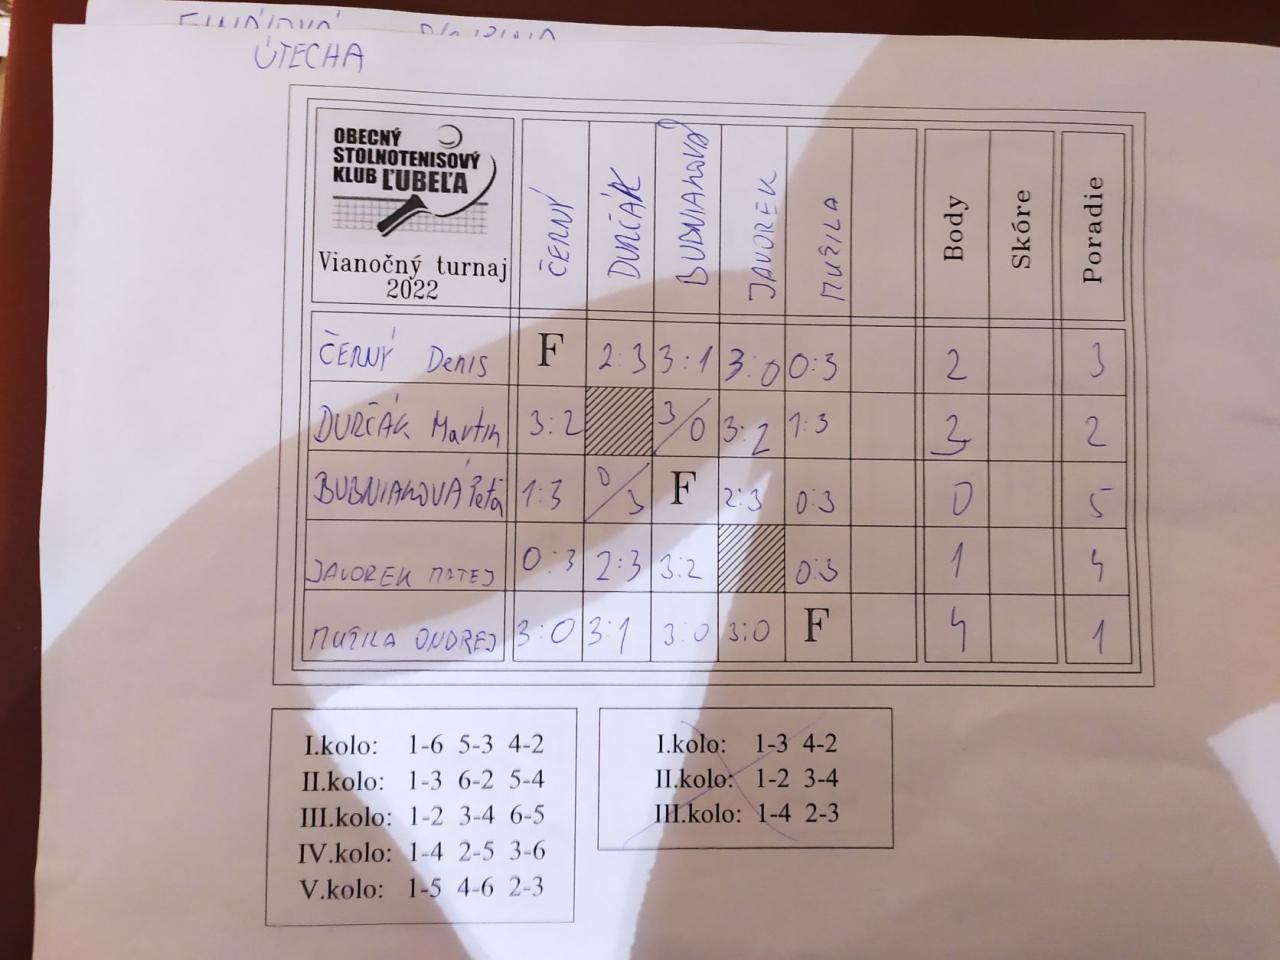 ÚTECHA
OBECNÝ
STOLNOTENISOVÝ
KLUB ĽUBEĽA
Vianočný turnaj
2022
ČERNÝ DURČÁK BUBNIAKOVÁ JAVOREK MUŽILA Body Skóre Poradie
ČERNÝ Denis F 2:3 3:1 3:0 0:3 2 3
DURČÁK Martin 3:2 3/0 3:2 1:3 3 2
BUBNIAKOVÁ Peťa 1:3 0/3 F 2:3 0:3 0 5
JAVOREK MATEJ 0:3 2:3 3:2 0:3 1 4
MUŽILA ONDREJ 3:0 3:1 3:0 3:0 F 4 1
I.kolo: 1-6 5-3 4-2
II.kolo: 1-3 6-2 5-4
III.kolo: 1-2 3-4 6-5
IV.kolo: 1-4 2-5 3-6
V.kolo: 1-5 4-6 2-3
I.kolo: 1-3 4-2
II.kolo: 1-2 3-4
III.kolo: 1-4 2-3